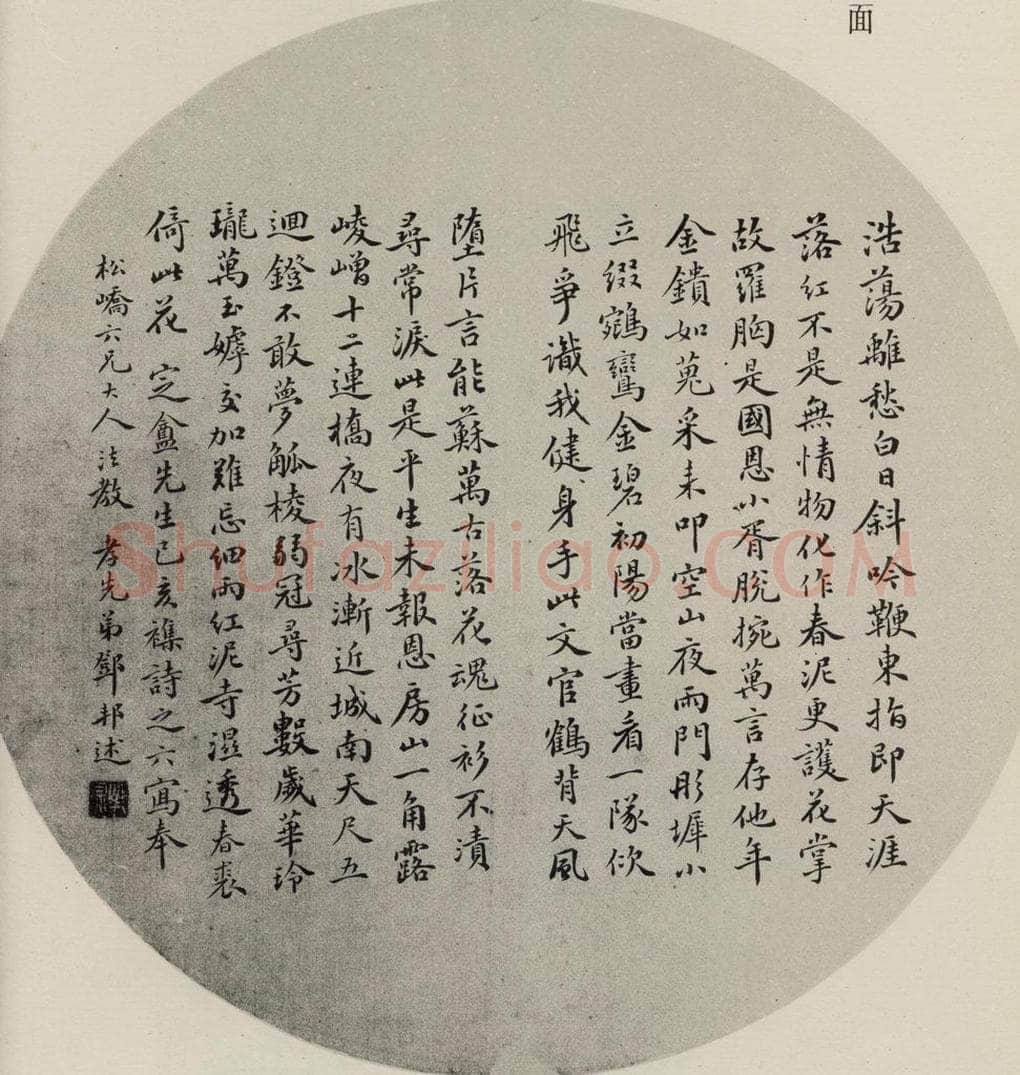 面
浩蕩離愁白日斜吟鞭東指即天涯
落紅不是無情物化作春泥更護花掌
故羅胸是國恩小胥脫捥萬言存他年
金鐀如蒐采来叩空山夜雨門彤墀小
立綴鵷鸞金碧初陽當畫看一隊佽
飛爭識我健身手此文官鶴背天風
墮片言能蘇萬古落花魂征衫不漬
尋常淚此是平生未報恩房山一角露
崚嶒十二連橋夜有冰漸近城南天尺五
迴鐙不敢夢觚棱弱冠尋芳數歲華玲
瓏萬玉嫭交加難忘細雨紅泥寺濕透春裘
倚此花 定盦先生己亥襍詩之六寫奉
松嶠六兄大人法教 孝先弟鄧邦述
Shufaziliao.COM